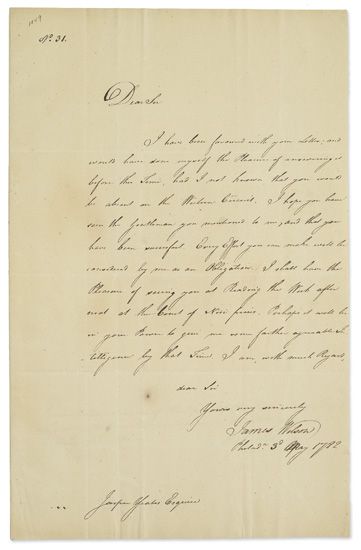 No. 31.
Dear Sir
I have been favoured with your Letter; and
would have done myself the Pleasure of answering it
before this Time, had I not known that you would
be absent on the Western Circuit. I hope you have
seen the Gentleman you mentioned to me; and that you
have been successful. Every Effort you can make will be
considered by me as an Obligation. I shall have the
Pleasure of seeing you at Reading the Week after
next at the Court of Nisi prius. Perhaps it will be
in your Power to give me some farther agreeable In
telligence by that Time. I am, with much Regard,
dear Sir
Yours very sincerely
James Wilson
Philada. 3d May 1782
Jasper Yeates Esquire